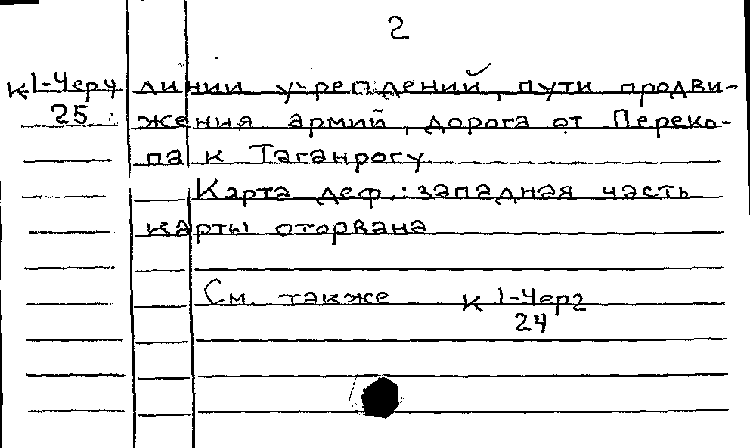 2
К 1-Чер 4 линии укреплений, пути продви-
25 жения армий, дорога от Переко-
па к Таганрогу.
Карта деф.: западная часть
карты оторвана
См. также К 1-Чер 2
24